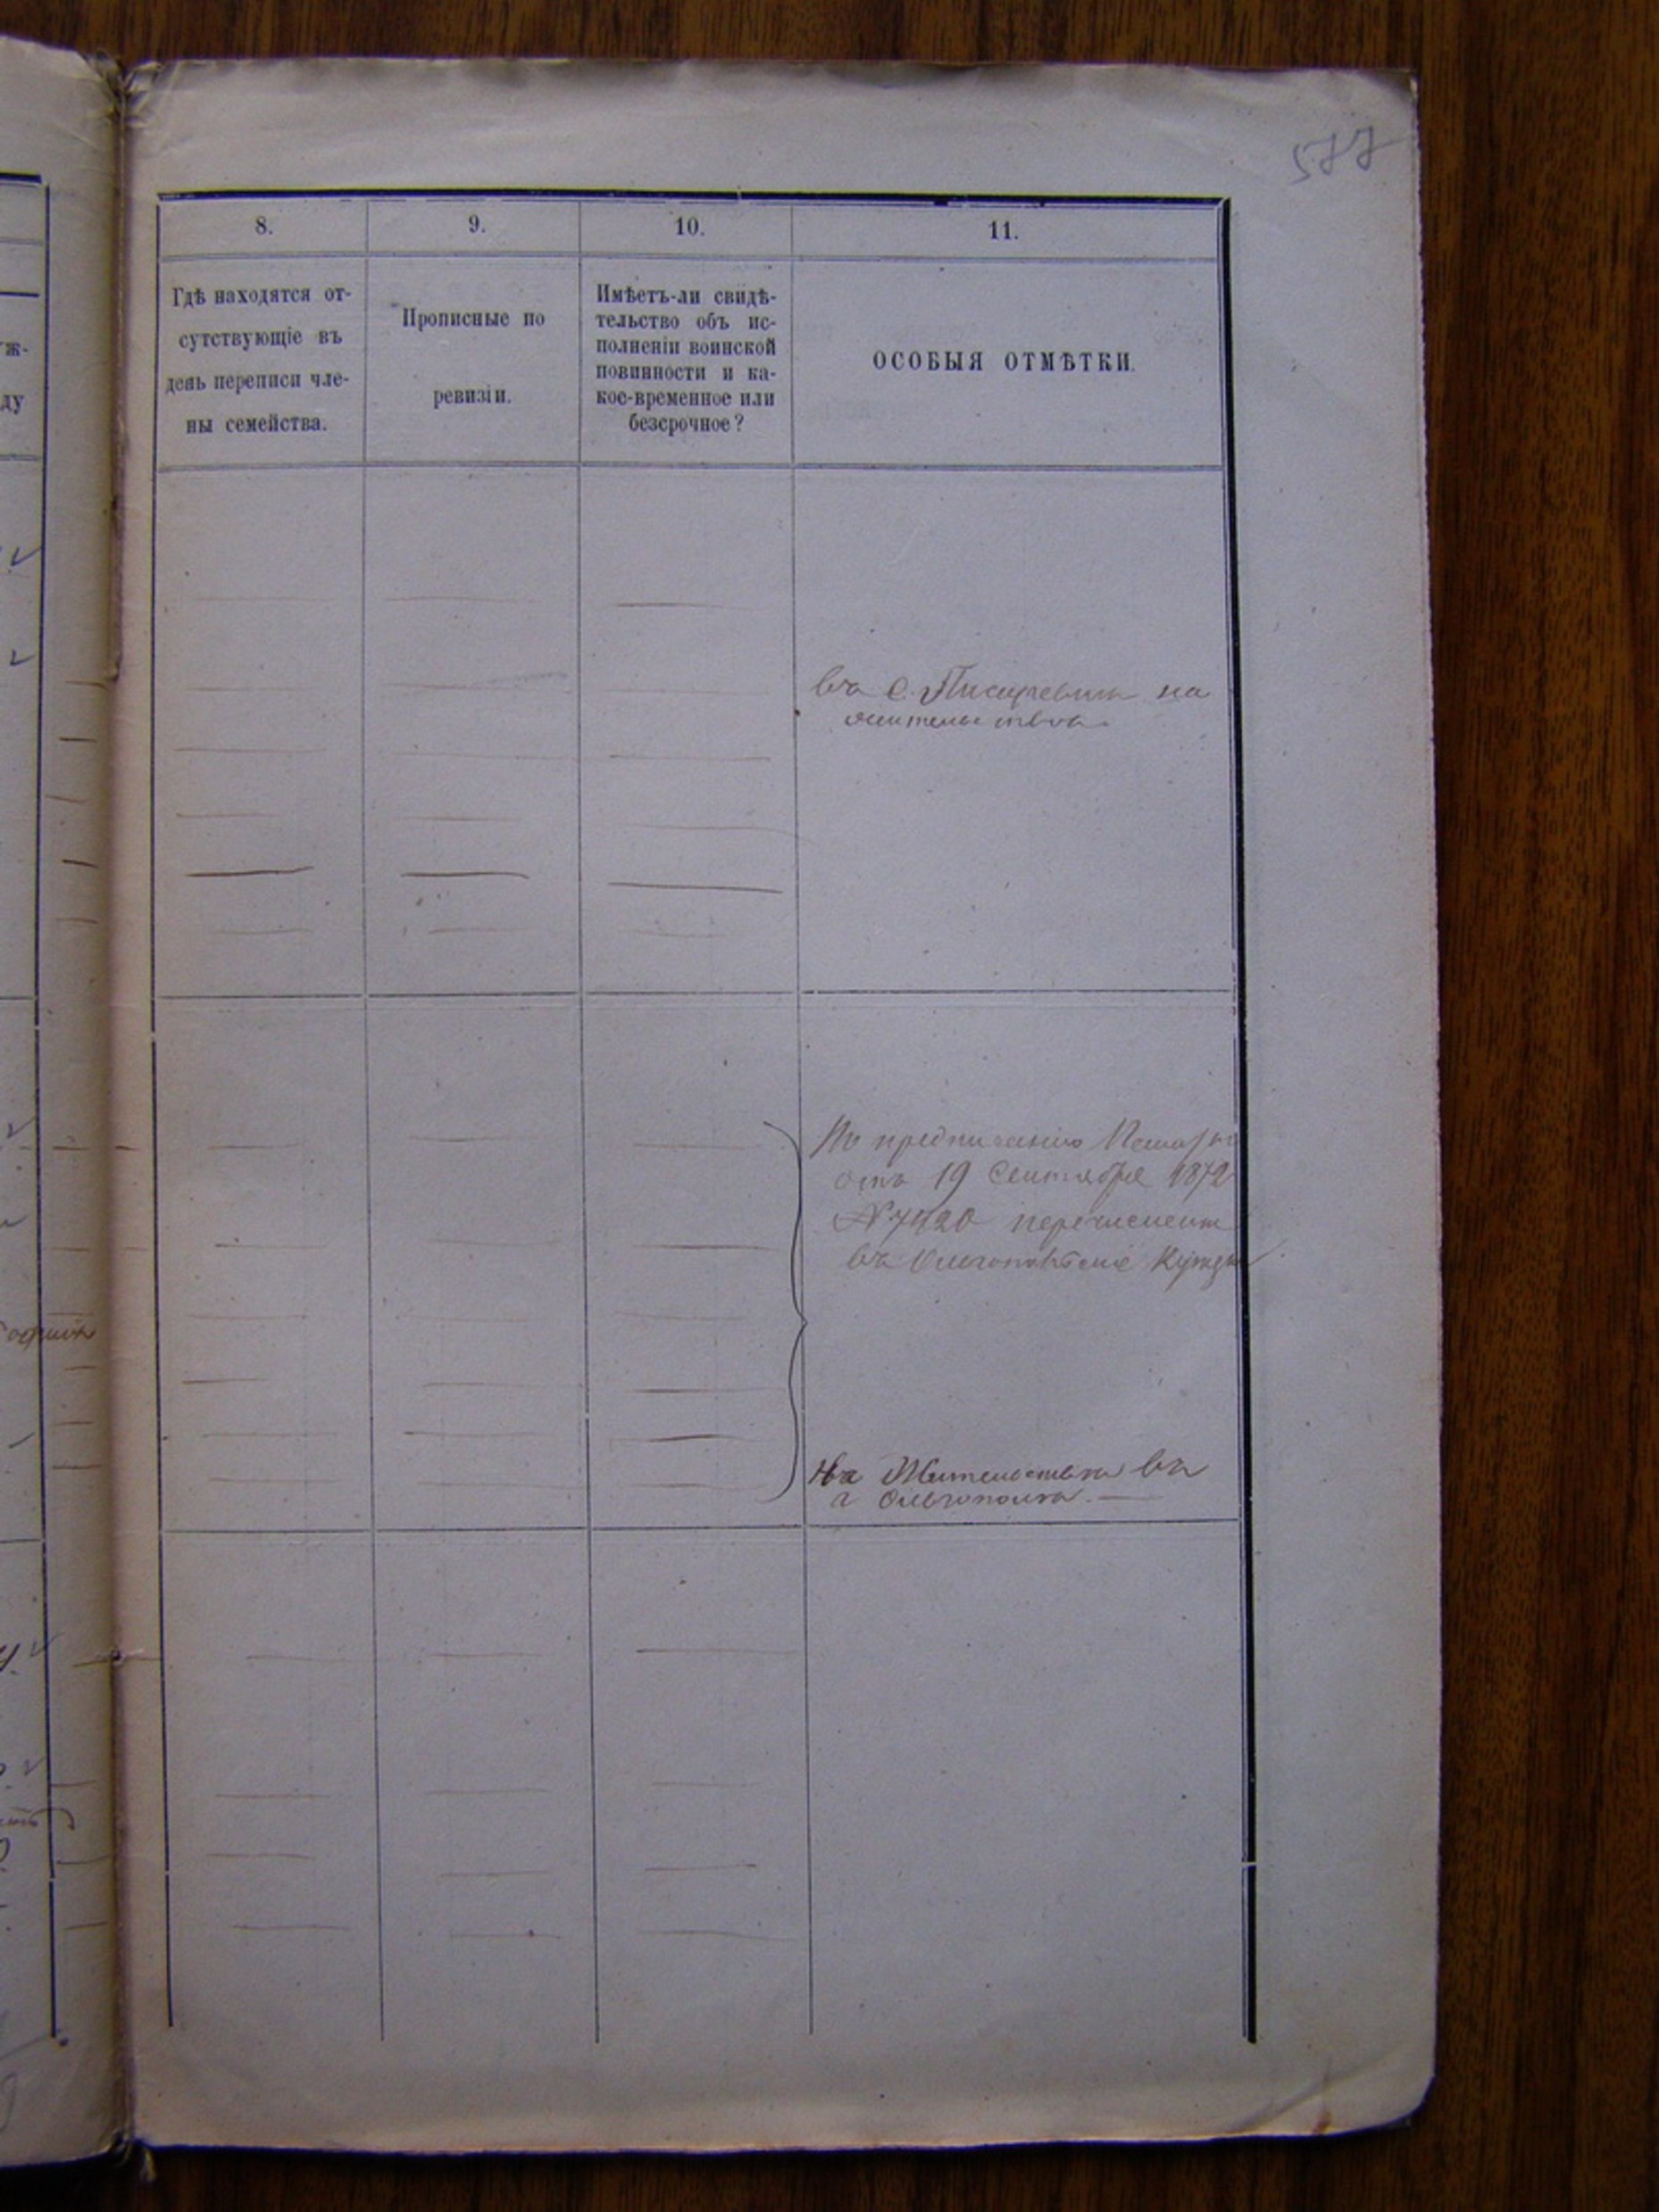 577
8.
9.
10.
11.
Гдѣ находятся от-
сутствующіе въ
день переписи чле-
ны семейства.
Прописные по
ревизіи.
Имѣетъ-ли свидѣ-
тельство объ ис-
полненіи воинской
повинности и ка-
кое-временное или
безсрочное?
ОСОБЫЯ ОТМѢТКИ.
въ с. Писаревки на
жительствѣ.
По предписанію
отъ 19 Сентября 1872
№ 7420 перечислены
въ Ольгопольскіе
На Жительствѣ въ
г Ольгополѣ. —
ж-
ду